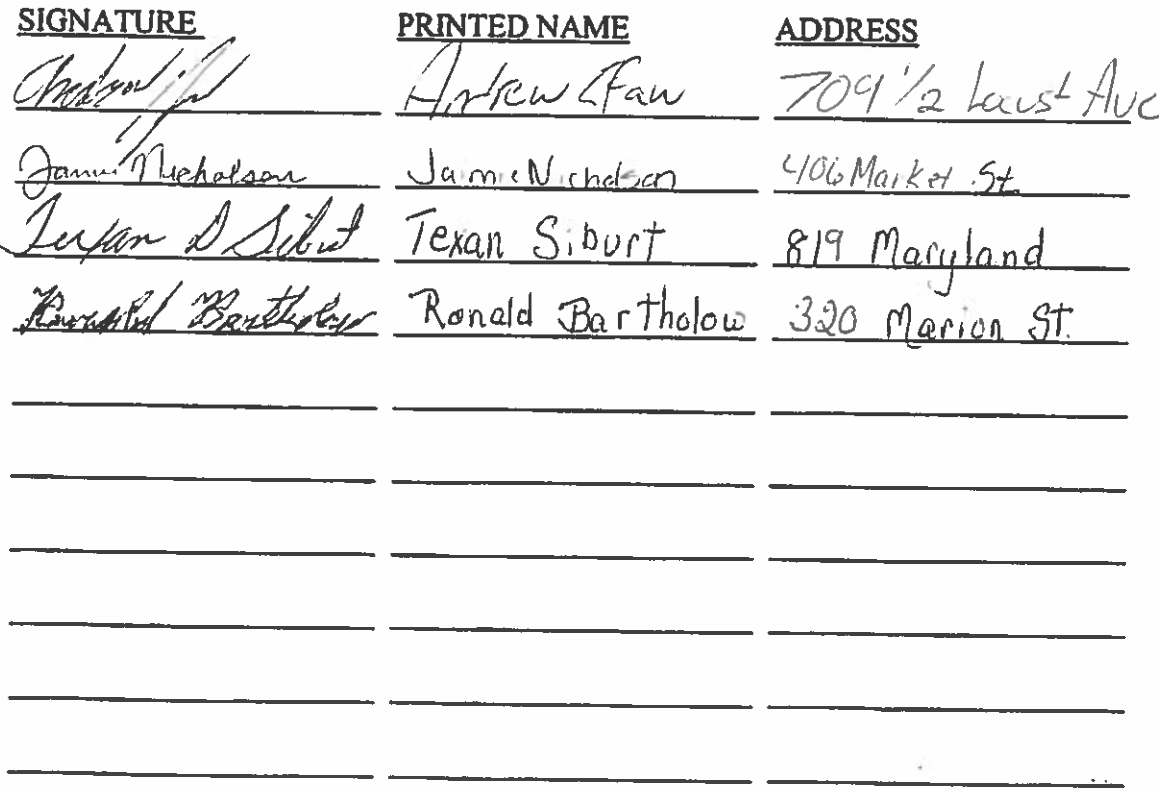 SIGNATURE PRINTED NAME ADDRESS
Andrew Faw 709 1/2 Locust Ave
Jamie Nicholson Jamie Nicholson 406 Market St.
Texan D Siburt Texan Siburt 819 Maryland
Ronald Bartholow Ronald Bartholow 320 Marion St.